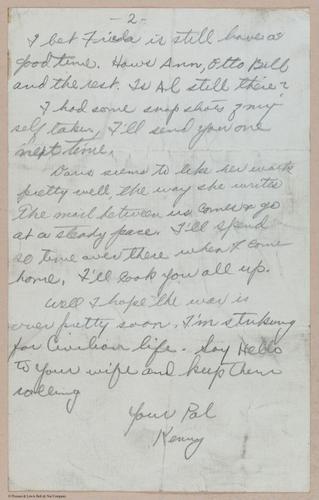 -2-
I bet Frieda is still have a
good time. Hows Ann, Otto Bill
and the rest. Is Al still there?
I had some snap shots of my
self taken, I'll send you one
next time.
Doris seems to like her work
pretty well, the way she writes
The mail between us comes & go
at a steady pace. I'll spend
so time over there when I come
home. I'll look you all up.
Well I hope the war is
over pretty soon. I'm striking
for Civilian life. Say Hello
to your wife and keep them
rolling
Your Pal
Kenny